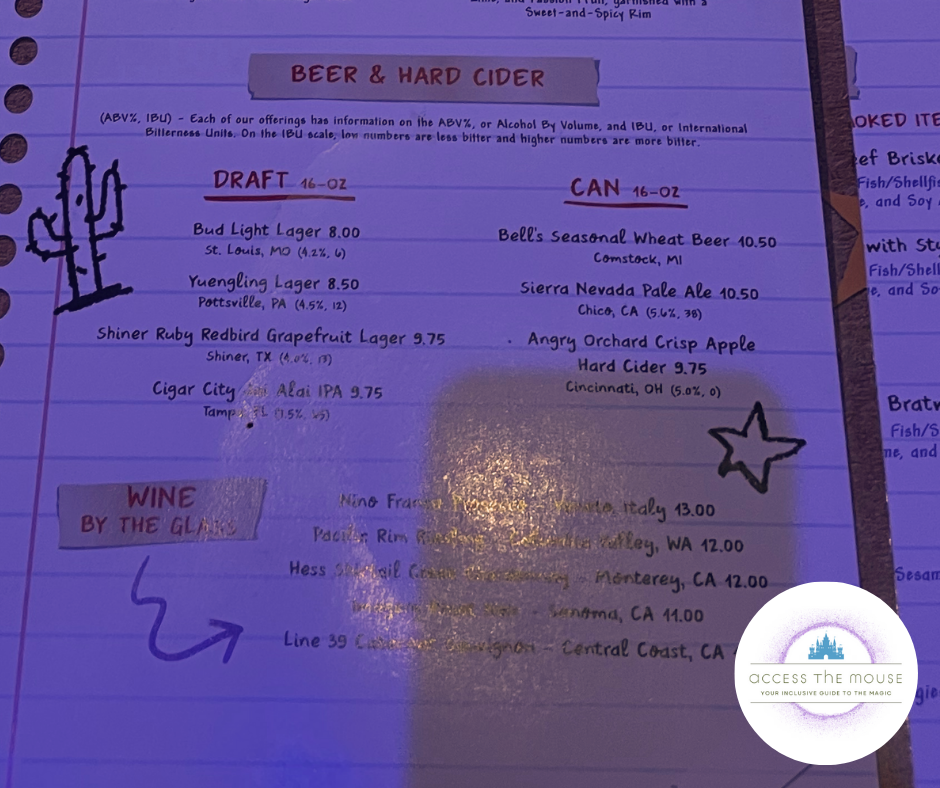 garnished with a
Sweet-and-Spicy Rim
BEER & HARD CIDER
(ABV%, IBU) - Each of our offerings has information on the ABV%, or Alcohol By Volume, and IBU, or International
Bitterness Units. On the IBU scale, low numbers are less bitter and higher numbers are more bitter.
DRAFT 16-OZ
Bud Light Lager 8.00
St. Louis, MO (4.2%, 6)
Yuengling Lager 8.50
Pottsville, PA (4.5%, 12)
Shiner Ruby Redbird Grapefruit Lager 9.75
Shiner, TX (4.0%, 13)
Cigar City Alai IPA 9.75
CAN 16-OZ
Bell's Seasonal Wheat Beer 10.50
Comstock, MI
Sierra Nevada Pale Ale 10.50
Chico, CA (5.6%, 38)
Angry Orchard Crisp Apple
Hard Cider 9.75
Cincinnati, OH (5.0%, 0)
WINE
BY THE GLASS
Nino Italy 13.00
Pacific Rim Valley, WA 12.00
Hess - Monterey, CA 12.00
- Sonoma, CA 11.00
Line 39 - Central Coast, CA
OKED ITE
ef Briske
Fish/Shellfis
e, and Soy
with Stu
Fish/Shell
e, and So
Bratw
Fish/S
ne, and
Sesam
gie
ACCESS THE MOUSE
YOUR INCLUSIVE GUIDE TO THE MAGIC